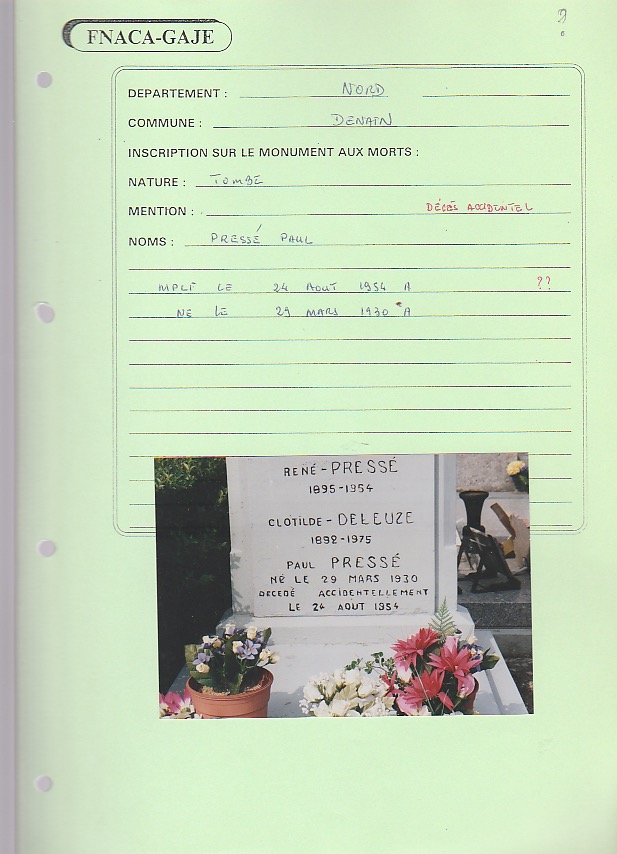 ?
FNACA-GAJE
DEPARTEMENT : NORD
COMMUNE : DENAIN
INSCRIPTION SUR LE MONUMENT AUX MORTS :
NATURE : TOMBE
MENTION : DÉCÈS ACCIDENTEL
NOMS : PRESSÉ PAUL
MPLF LE 24 AOUT 1954 A ??
NE LE 29 MARS 1930 A
RENÉ-PRESSÉ
1895-1954
CLOTILDE-DELEUZE
1892-1975
PAUL PRESSÉ
NÉ LE 29 MARS 1930
DECEDÉ ACCIDENTELLEMENT
LE 24 AOUT 1954